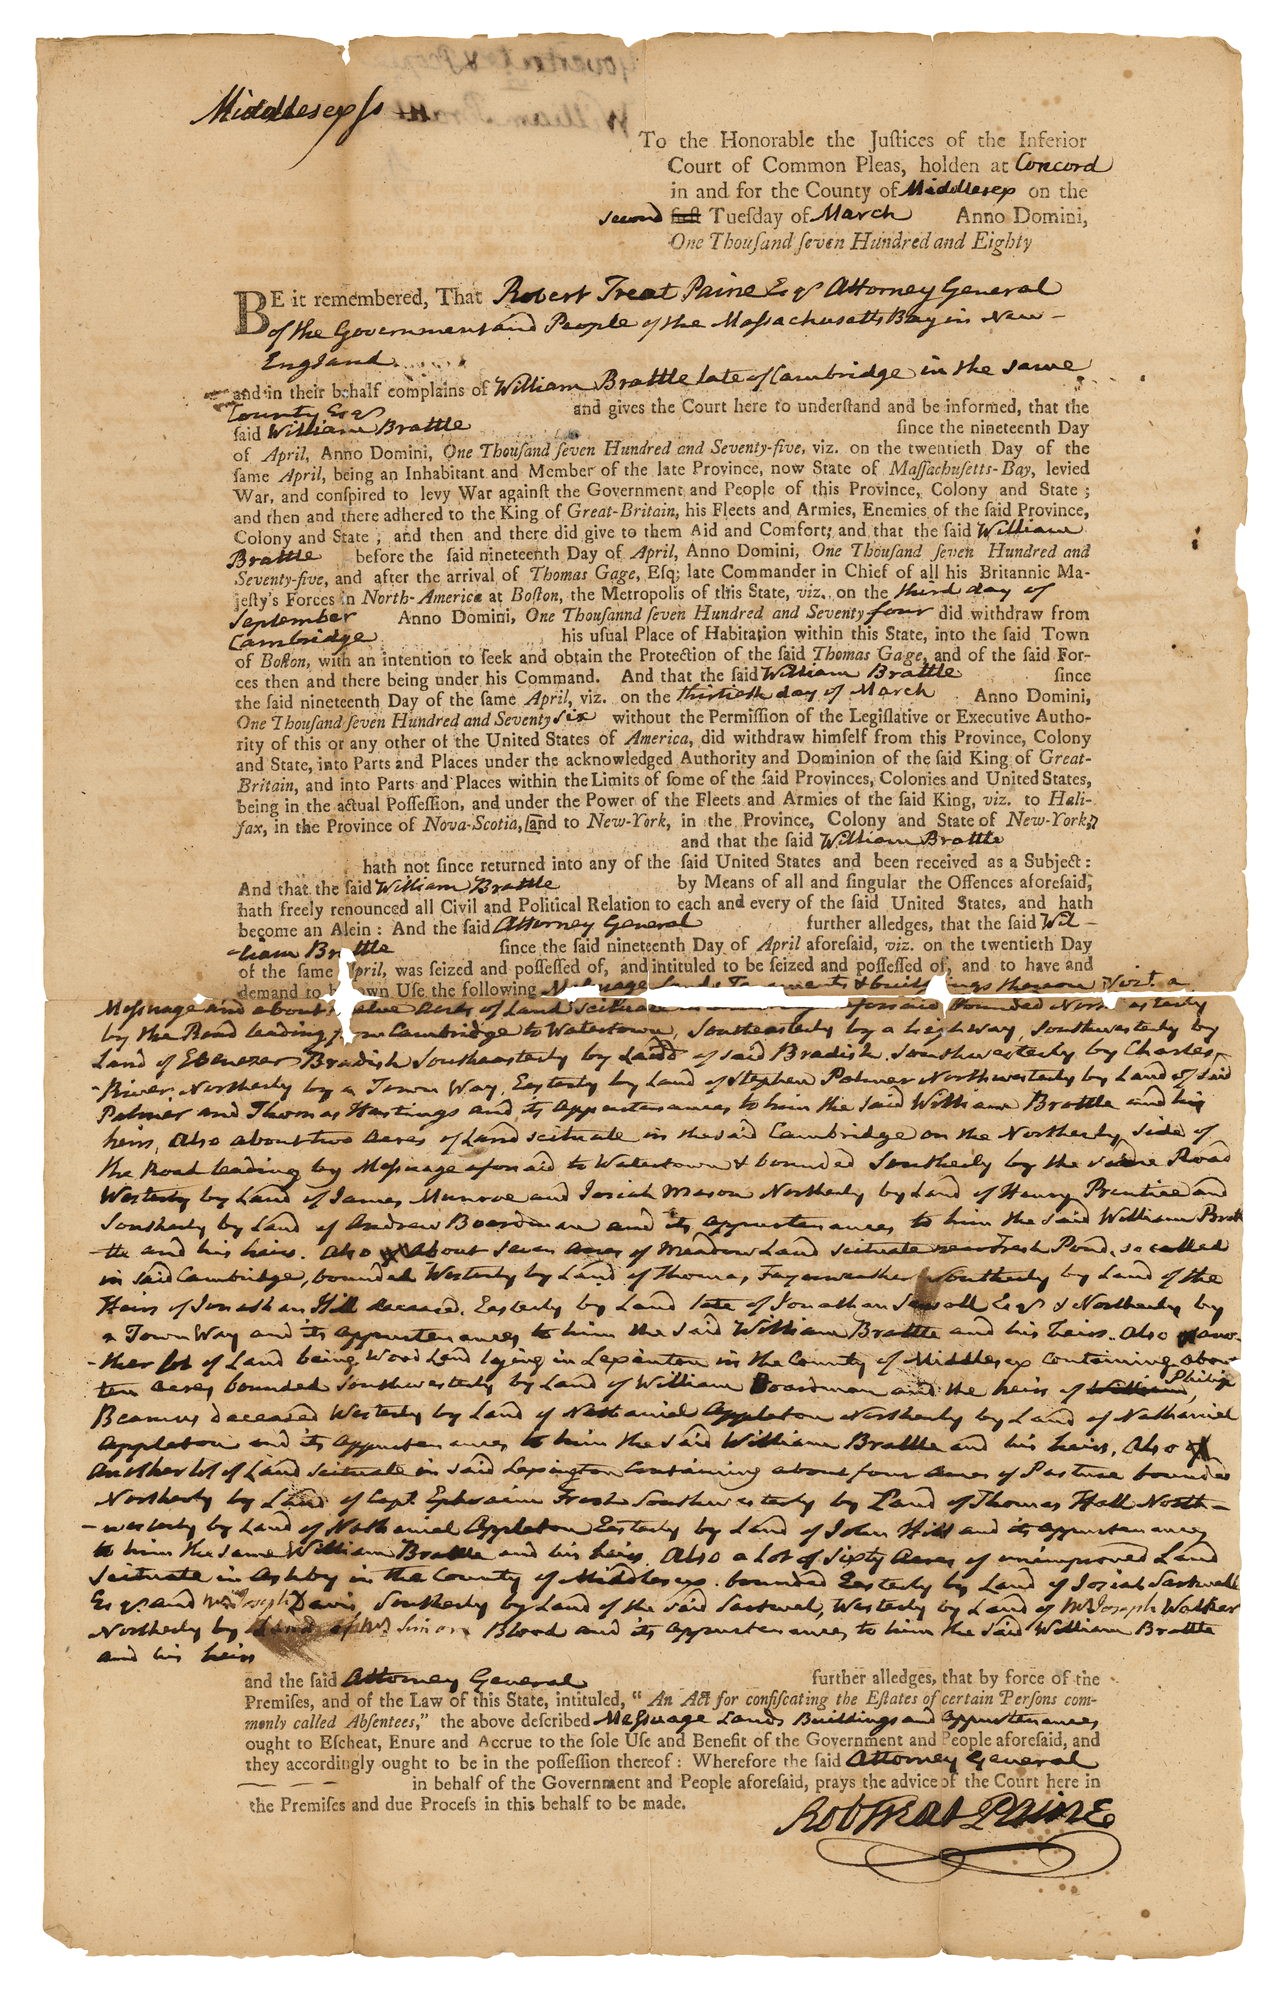 Middlesex ss
To the Honorable the Juſtices of the Inferior
Court of Common Pleas, holden at Concord
in and for the County of Middlesex on the
second firſt Tueſday of March Anno Domini,
One Thouſand ſeven Hundred and Eighty
BE it remembered, That Robert Treat Paine Esqr Attorney General
of the Government and People of the Massachusetts Bay in New-
England
and in their behalf complains of William Brattle late of Cambridge in the same
County Esqr and gives the Court here to underſtand and be informed, that the
ſaid William Brattle ſince the nineteenth Day
of April, Anno Domini, One Thouſand ſeven Hundred and Seventy-five, viz. on the twentieth Day of the
ſame April, being an Inhabitant and Member of the late Province, now State of Maſſachuſetts-Bay, levied
War, and conſpired to levy War againſt the Government and People of this Province, Colony and State ;
and then and there adhered to the King of Great-Britain, his Fleets and Armies, Enemies of the ſaid Province,
Colony and State ; and then and there did give to them Aid and Comfort; and that the ſaid William
Brattle before the ſaid nineteenth Day of April, Anno Domini, One Thouſand ſeven Hundred and
Seventy-five, and after the arrival of Thomas Gage, Eſq; late Commander in Chief of all his Britannic Ma-
jeſty's Forces in North-America at Boſton, the Metropolis of this State, viz. on the third day of
September Anno Domini, One Thouſannd ſeven Hundred and Seventy four did withdraw from
Cambridge his uſual Place of Habitation within this State, into the ſaid Town
of Boſton, with an intention to ſeek and obtain the Protection of the ſaid Thomas Gage, and of the ſaid For-
ces then and there being under his Command. And that the ſaid William Brattle ſince
the ſaid nineteenth Day of the ſame April, viz. on the thirtieth day of March Anno Domini,
One Thouſand ſeven Hundred and Seventy six without the Permiſſion of the Legiſlative or Executive Autho-
rity of this or any other of the United States of America, did withdraw himſelf from this Province, Colony
and State, into Parts and Places under the acknowledged Authority and Dominion of the ſaid King of Great-
Britain, and into Parts and Places within the Limits of ſome of the ſaid Provinces, Colonies and United States,
being in the actual Poſſeſſion, and under the Power of the Fleets and Armies of the ſaid King, viz. to Hali-
fax, in the Province of Nova-Scotia, [and to New-York, in the Province, Colony and State of New-York;]
and that the ſaid William Brattle
hath not ſince returned into any of the ſaid United States and been received as a Subject :
And that the ſaid William Brattle by Means of all and ſingular the Offences aforeſaid,
hath freely renounced all Civil and Political Relation to each and every of the ſaid United States, and hath
become an Alein : And the ſaid Attorney General further alledges, that the ſaid Wil-
-liam Brattle ſince the ſaid nineteenth Day of April aforeſaid, viz. on the twentieth Day
of the ſame April, was ſeized and poſſeſſed of, and intituled to be ſeized and poſſeſſed of, and to have and
demand to own Uſe the following Messuage Lands Tenements & buildings thereon Vizt a
Messuage and about Acres of Land scituate bounded Northeasterly
by the Road leading from Cambridge to Watertown, Southeasterly by a highway, Southwesterly by
Land of Ebenezer Bradish Southeasterly by Land of said Bradish. Southwesterly by Charles
-River, Northerly by a Town Way, Easterly by Land of Stephen Palmer Northwesterly by Land of said
Palmer and Thomas Hastings and its appurtenances to him the said William Brattle and his
heirs, Also about two Acres of Land scituate in the said Cambridge on the Northerly side of
the Road leading by Messuage aforsaid to Watertown & bounded Southerly by the same Road
Westerly by Land of James Munroe and Josiah Mason Northerly by Land of Henry Prentice and
Southerly by Land of Andrew Boardman and its appurtenances to him the said William Brat
-tle and his heirs. Also about seven acres of Meadow Land scituate near Fresh Pond, so called
in said Cambridge, bounded Westerly by Land of Thomas Fayerweather Southerly by Land of the
Heirs of Jonathan Hill deceased, Easterly by Land late of Jonathan Sewall Esqr & Northerly by
a Town Way and its appurtenances to him the said William Brattle and his heirs. Also ano-
-ther lot of Land being Wood Land lying in Lexinton in the County of Middlesex containing about
ten acres bounded Southwesterly by Land of William Boardman and the heirs of William Philip
Beamus deceased Westerly by Land of Nathaniel Appleton Northerly by Land of Nathaniel
Appleton and its appurtenances to him the said William Brattle and his heirs, Also
another lot of Land scituate in said Lexington containing about four acres of Pasture bounded
Northerly by Land of Capt. Ephraim Frost Southwesterly by Land of Thomas Hall North-
-westerly by Land of Nathaniel Appleton Easterly by Land of John Hill and its appurtenances
to him the same William Brattle and his heirs. Also a Lot of Sixty Acres of unimproved Land
Scituate in Ashby in the County of Middlesex. bounded Easterly by Land of Josiah Sartwell
Esqr. and Mr Joseph Davis, Southerly by Land of the said Sartwel, Westerly by Land of Mr Joseph Walker
Northerly by Land of Mr Simon Blood and its appurtenances to him the said William Brattle
and his heirs
and the ſaid Attorney General further alledges, that by force of the
Premiſes, and of the Law of this State, intituled, "An Act for confiſcating the Eſtates of certain Perſons com-
monly called Abſentees," the above deſcribed Messuage Lands Buildings and appurtenances
ought to Eſcheat, Enure and Accrue to the ſole Uſe and Benefit of the Government and People aforeſaid, and
they accordingly ought to be in the poſſeſſion thereof : Wherefore the ſaid Attorney General
in behalf of the Government and People aforeſaid, prays the advice of the Court here in
the Premiſes and due Proceſs in this behalf to be made.
Rob Treat Paine